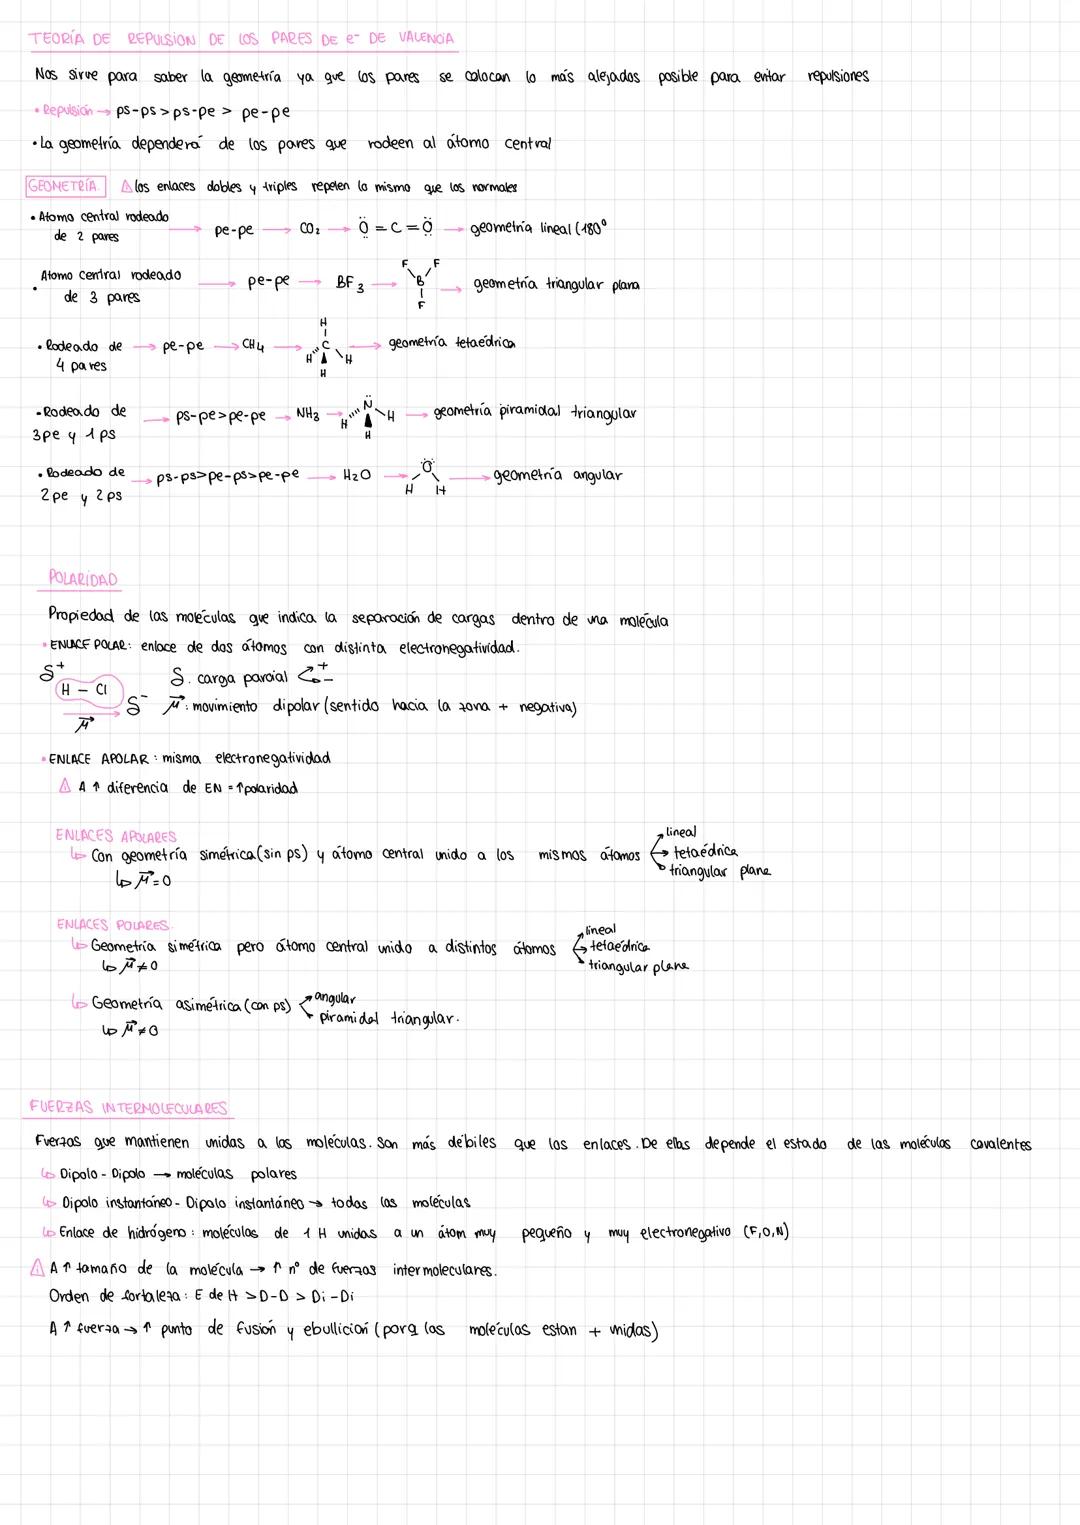 TEORÍA DE REPULSION DE LOS PARES DE e- DE VALENCIA
Nos sirve para saber la geometría ya que los pares se colocan lo más alejados posible para evitar repulsiones
• Repulsión → ps-ps > ps-pe > pe-pe
• La geometría dependerá de los pares que rodeen al átomo central
GEOMETRÍA. ⚠ los enlaces dobles y triples repelen lo mismo que los normales
• Atomo central rodeado de 2 pares → pe-pe → CO2 → O = C = O → geometría lineal (180º
• Atomo central rodeado de 3 pares → pe-pe → BF3 → F F B F → geometría triangular plana
• Rodeado de 4 pares → pe-pe → CH4 → H C H H H → geometría tetaédrica
• Rodeado de 3pe y 1 ps → ps-pe>pe-pe → NH3 → N H H H → geometría piramidal triangular
• Rodeado de 2pe y 2ps → ps-ps>pe-ps>pe-pe → H2O → O H H → geometría angular
POLARIDAD
Propiedad de las moléculas que indica la separación de cargas dentro de una molécula
• ENLACE POLAR: enlace de dos átomos con distinta electronegatividad.
δ+ H - Cl δ- μ⃗
δ. carga parcial + -
μ⃗: movimiento dipolar (sentido hacia la zona + negativa)
• ENLACE APOLAR: misma electronegatividad
⚠ A ↑ diferencia de EN = ↑polaridad
ENLACES APOLARES
↳ Con geometría simétrica (sin ps) y átomo central unido a los mismos átomos → lineal → tetaédrica → triangular plana
↳ μ⃗ = 0
ENLACES POLARES.
↳ Geometría simétrica pero átomo central unido a distintos átomos → lineal → tetaédrica → triangular plana
↳ μ⃗ ≠ 0
↳ Geometría asimétrica (con ps) → angular → piramidal triangular.
↳ μ⃗ ≠ 0
FUERZAS INTERMOLECULARES
Fuerzas que mantienen unidas a las moléculas. Son más débiles que los enlaces. De ellas depende el estado de las moléculas covalentes
↳ Dipolo - Dipolo → moléculas polares
↳ Dipolo instantáneo - Dipolo instantáneo → todas las moléculas
↳ Enlace de hidrógeno: moléculas de 1 H unidas a un átom muy pequeño y muy electronegativo (F,O,N)
⚠ A ↑ tamaño de la molécula → ↑ nº de fuerzas intermoleculares.
Orden de fortaleza: E de H > D-D > Di-Di
A ↑ fuerza → ↑ punto de fusión y ebullición (porq las moléculas estan + unidas)